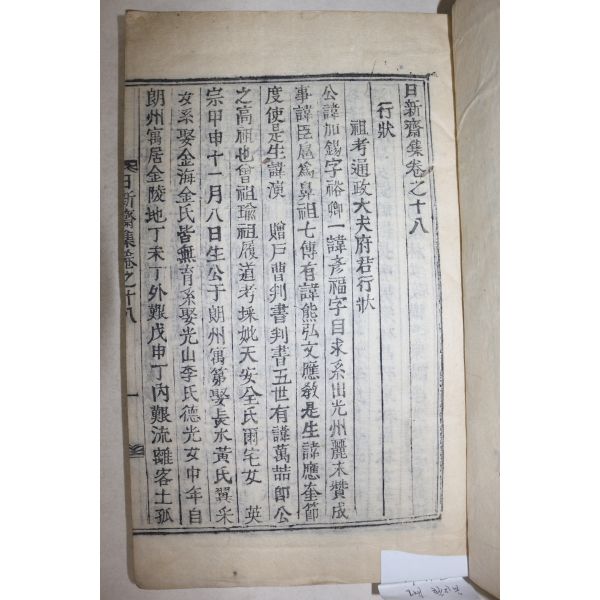 日新齋集卷之十八
行狀
祖考通政大夫府君行狀
公諱加錫字裕卿一諱彦福字自求系出光州麗末贊成
事諱臣扈爲鼻祖七傳有諱熊弘文應敎是生諱應奎節
度使是生諱演 贈戶曹判書判書五世有諱萬喆卽公
之高祖也曾祖瑜祖履道考埰妣天安全氏爾宅女 英
宗甲申十一月八日生公于朗州寓第娶長水黃氏翼采
女系娶金海金氏皆無育系娶光山李氏德光女中年自
朗州寓居金陵地丁未丁外艱戊申丁內艱流離客土孤
日新齋集卷之十八
一